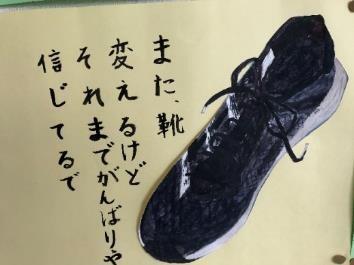 また、靴
変えるけど
それまでがんばりや
信じてるで